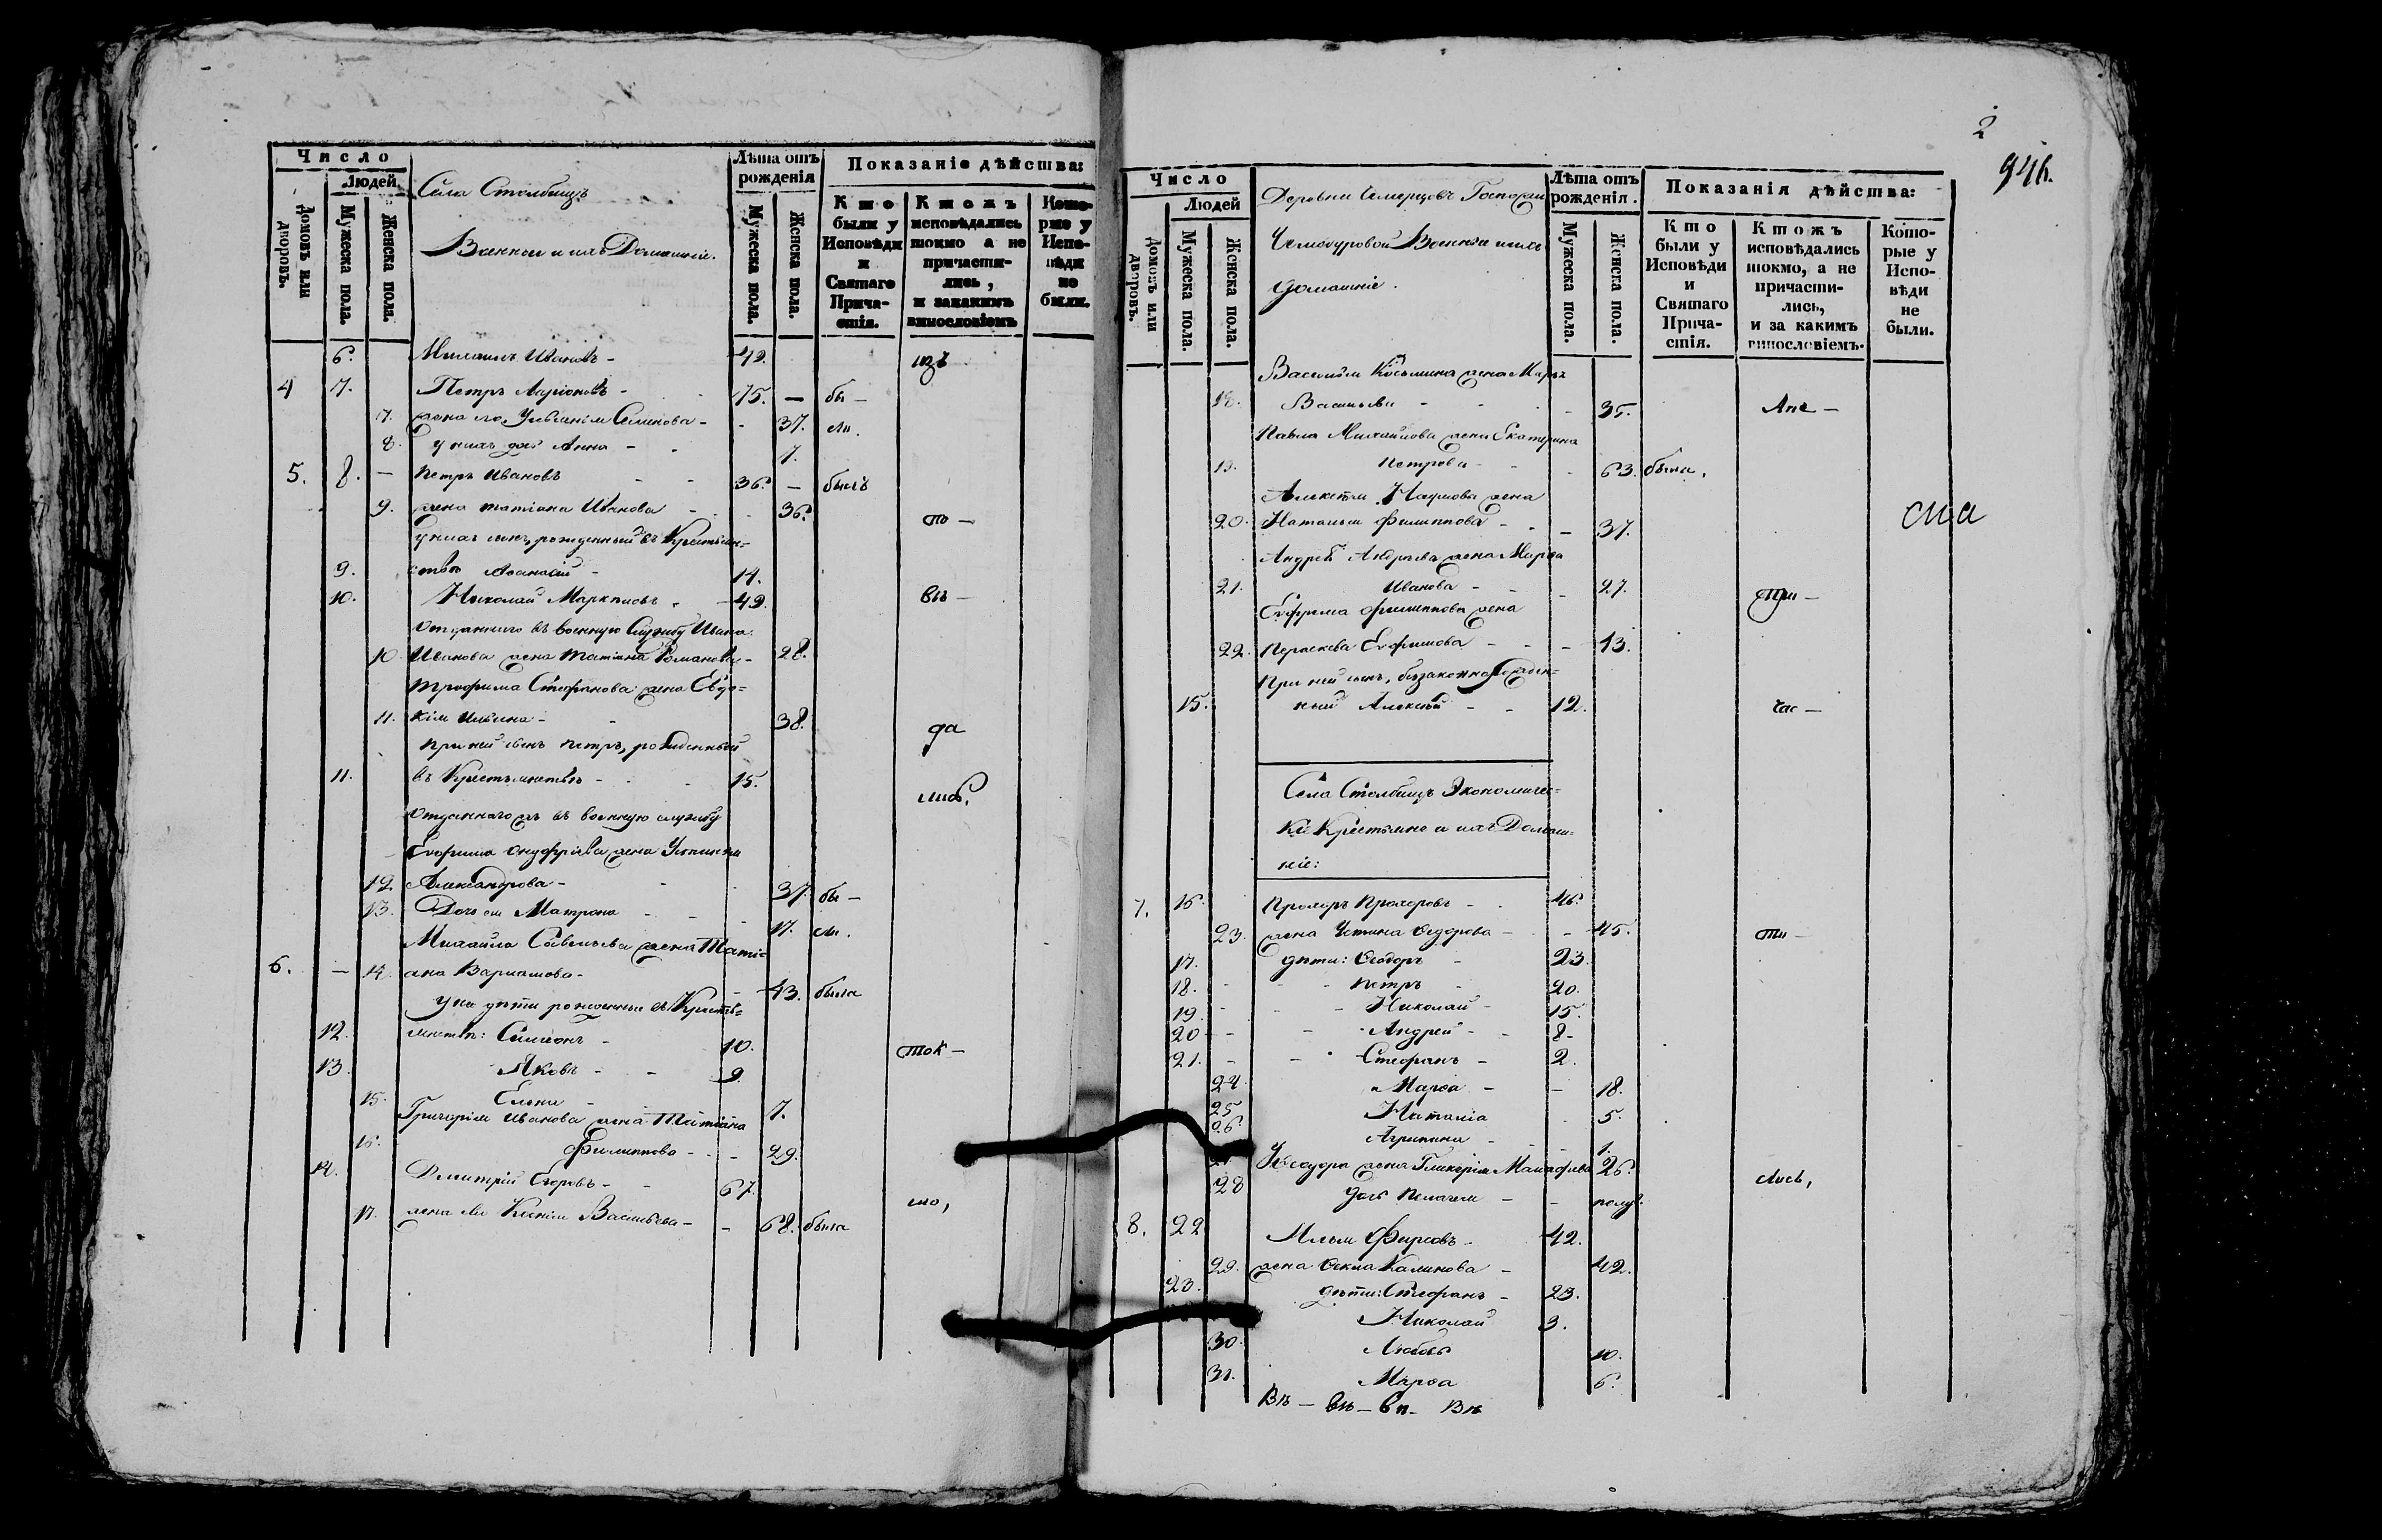 Число
Людей
Домовъ или дворовъ.
Мужеска пола.
Женска пола.
Села Столбищъ
Военнои и ихъ Домашніе.
Лѣта отъ рожденія
Мужеска пола.
Женска пола.
Показаніе дѣйства:
Кто были у Исповѣди и Святаго Причастія.
Ктожъ исповѣдались токмо а не причастились, и закакимъ винословіемъ
Которые у Исповѣди не были.
6. Михаилъ Ивановъ - 42.
4 7. Петръ Ларіоновъ - 75. — бы —
7. жена его Ульянія Семенова - 37. ли.
8. у нихъ дочь Анна - 7.
5. 8. — Петръ Ивановъ - - 36. — былъ
9. жена Татіана Иванова - - 36.
то —
у нихъ сынъ, рожденный въ Крестьян=
9. ствѣ Аѳанасій - 14.
10. Николай 49. вѣ —
Отданнаго въ военную Службу Ивана
10. Иванова жена Татіана Романова - 28.
Трофима Стефанова жена Евдо=
11. кія Ильина - 38.
да
при ней сынъ Петръ, рожденный
11. въ Крестьянствѣ - - 15.
лись,
Отданнаго въ военную службу
Евфима Онуфріева жена Устинья
12. Александрова - 37. бы —
13. Дочь ея Матрона - - 17. ли.
Михаила Савельева жена Таті=
6. — 14 ана Варламова - 43. была
у ней дѣти рожденные въ Кресть=
12. янствѣ: Симеонъ - 10.
ток —
13. Яковъ - - 9.
15. Елена - 7.
Григорія Иванова жена Татіана
16. Филиппова - - - 29.
14. Дмитрій Егоровъ - - 67.
мо,
17. жена его Ксенія Васильева - - 68. была
2
946.
Число
Людей
Домовъ или дворовъ.
Мужеска пола.
Женска пола.
Деревни Госпожи
Чемодуровой Военные и ихъ
домашніе.
Лѣта отъ рожденія.
Мужеска пола.
Женска пола.
Показанія дѣйства:
Кто были у Исповѣди и Святаго Причастія.
Ктожъ исповѣдались токмо, а не причастились, и за какимъ винословіемъ.
Которые у Исповѣди не были.
Василія Косьмина жена Марѳа
18. Васильева - - 35.
Павла Михайлова жена Екатерина
19. Петрова - - 63. была,
Алексѣя Наумова жена
20. Наталья Филиппова - - - 37.
Андрей Андреева жена Марѳа
21. Иванова - - - 27. при —
Евфима Филиппова жена
22. Параскева Евфимова - - - 43.
При ней сынъ, беззаконнорожден=
15. ный Алексѣй - - 12. час —
Села Столбищъ Экономичес=
кіе Крестьяне и ихъ Домаш=
ніе:
7. 16. Прохоръ Прохоровъ - - 46.
23. жена Устина Ѳедорова - - 45. ти —
17. дѣти: Ѳеодоръ - 23.
18. - - - Петръ - 20.
19. - - - Николай - 15.
20 - - - Андрей - - 8 -
21. - - Стефанъ - 2.
24. Марѳа - - 18.
25 Наталіа - 5.
26 Агрипина - - 1.
27 Ѳеодора жена Гликерія 26.
лись,
28 дочь Пелагея - - полуг.
8. 22 Илья Фирсовъ - 42.
29. жена Ѳекла Калинова - 42.
23. дѣти: Стефанъ - 23.
Николай 3.
30. Любовь 10.
31. Марѳа 6.
Вѣ — вѣ — вѣ — Вѣ